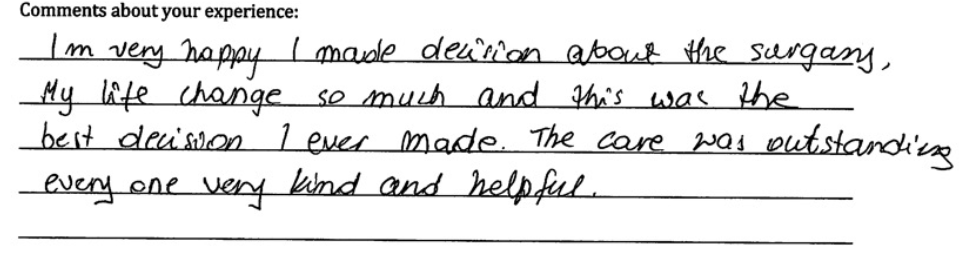 Comments about your experience:
Im very happy I made decision about the surgany,
My life change so much and this was the
best decision I ever made. The care was outstanding
every one very kind and helpful.